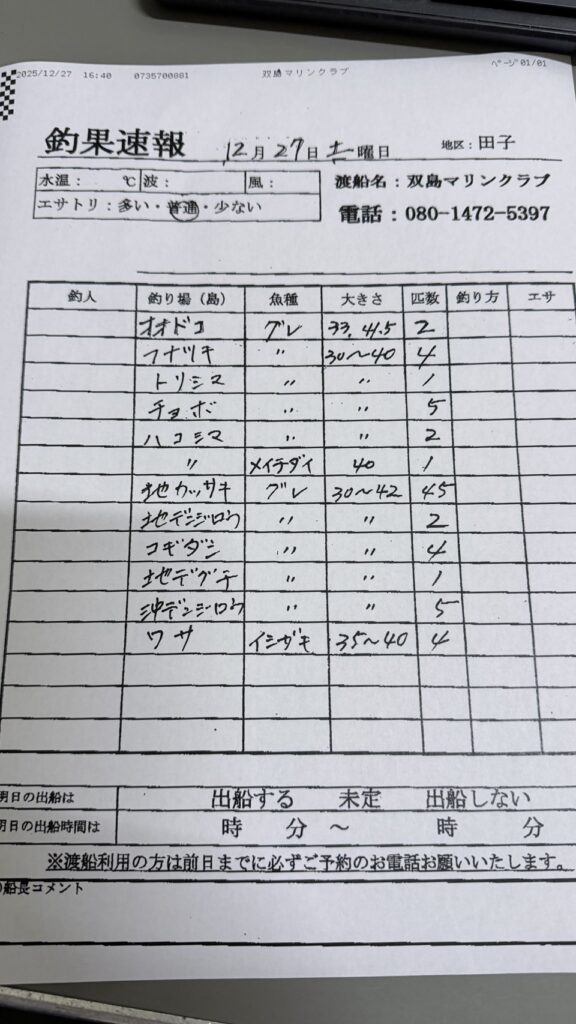 2025/12/27 16:40 0735700881 双島マリンクラブ ページ 01/01
釣果速報 12月 27日 土曜日 地区：田子
水温： ℃ 波： 風： 渡船名：双島マリンクラブ
エサトリ：多い・普通・少ない 電話：080-1472-5397
釣人 釣り場（島） 魚種 大きさ 匹数 釣り方 エサ
オオドコ グレ 33. 41.5 2
フナツキ 〃 30〜40 4
トリシマ 〃 〃 1
チョボ 〃 〃 5
ハコシマ 〃 〃 2
〃 メイチダイ 40 1
地カツサキ グレ 30〜42 45
地デンジロウ 〃 〃 2
コギダシ 〃 〃 4
地デグチ 〃 〃 1
沖デンジロウ 〃 〃 5
ワサ イシガキ 35〜40 4
明日の出船は 出船する 未定 出船しない
明日の出船時間は 時 分 〜 時 分
※渡船利用の方は前日までに必ずご予約のお電話お願いいたします。
船長コメント